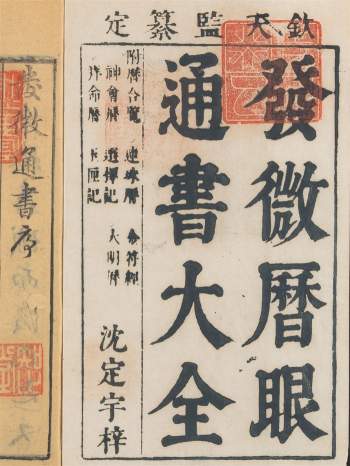 欽天監纂定
發微曆眼
通書大全
附曆合覽 連珠曆 金符經
神會曆 選擇記 大明曆
命曆 玉匣記
沈定宇梓
發微通書序